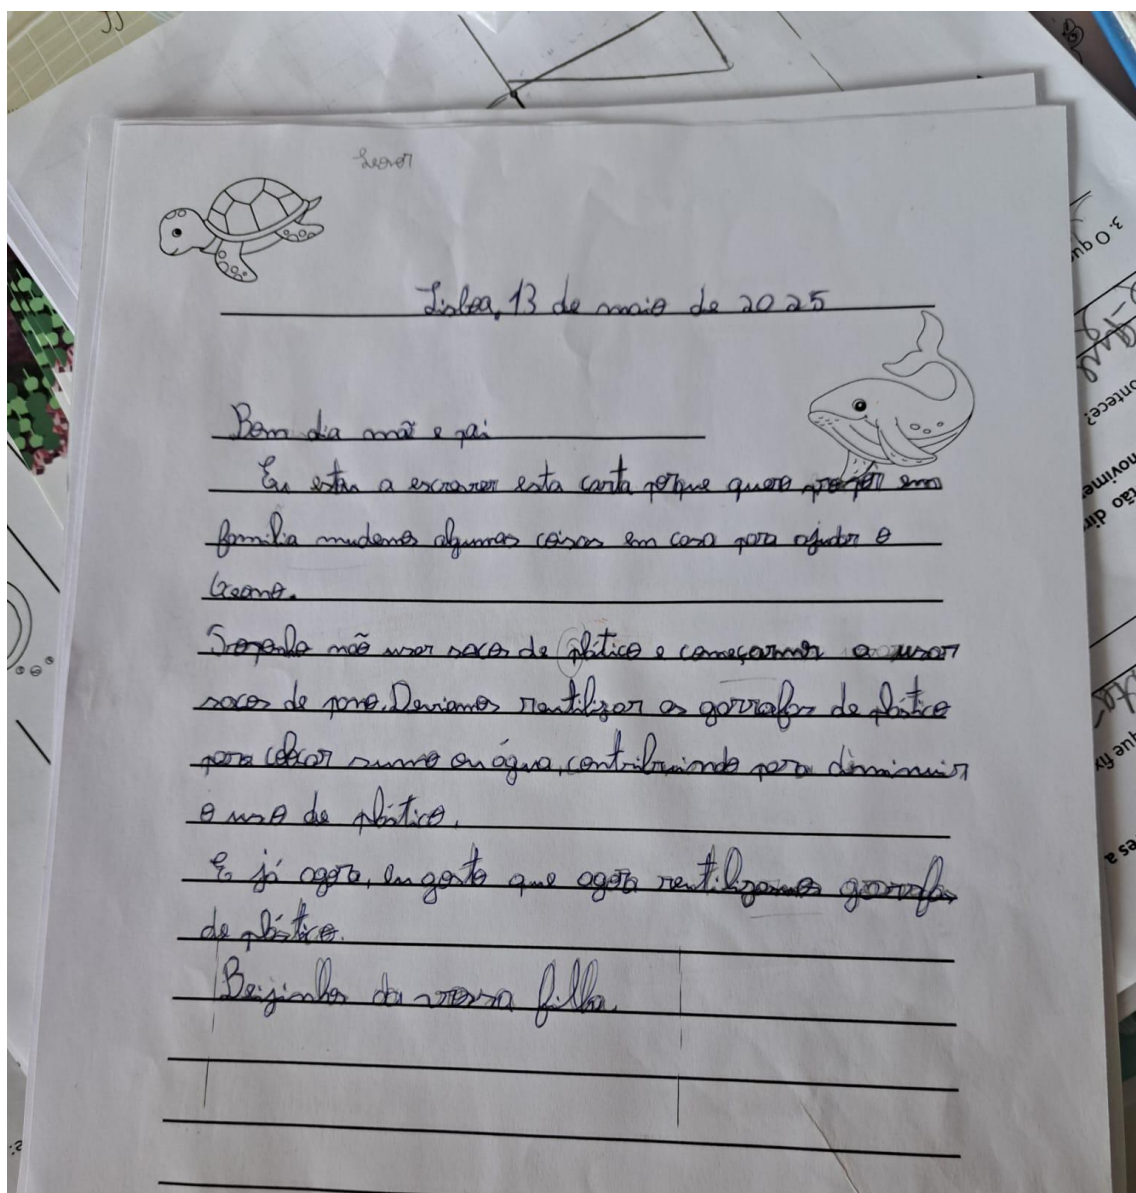 Leonor
Lisboa, 13 de maio de 2025
Bom dia mãe e pai
Eu estou a escrever esta carta porque quero em
família mudemos algumas coisas em casa para ajudar o
Oceano.
Proponho não usar sacos de plático e começarmos a usar
sacos de pano. Deviamos reutilizar as garrafas de plástico
para colocar sumo ou água, contribuindo para diminuir
o uso de plástico.
E já agora, eu gosto que agora reutilizamos garrafas
de plástico.
Beijinhos da vossa filha.
3. O que
ontece?
novime
tão dir
que fix
es a